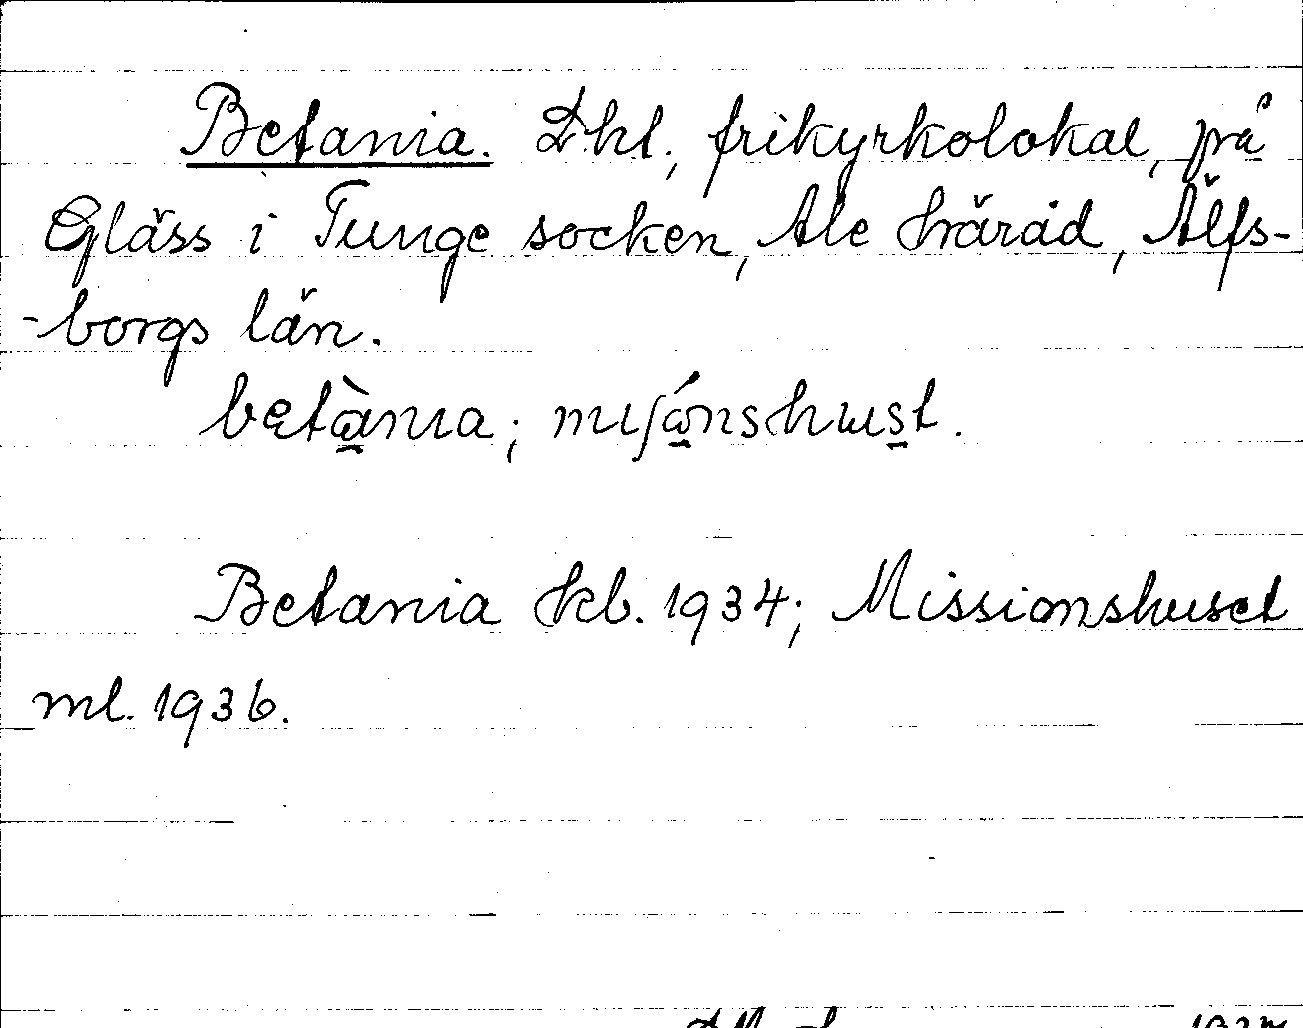 Betania. Dkl., frikyrkolokal, på
Gläss i Tunge socken, Ale härad, Älfs-
-borgs län.
betània; miʃónshust.
Betania kb. 1934; Missionshuset
ml. 1936.